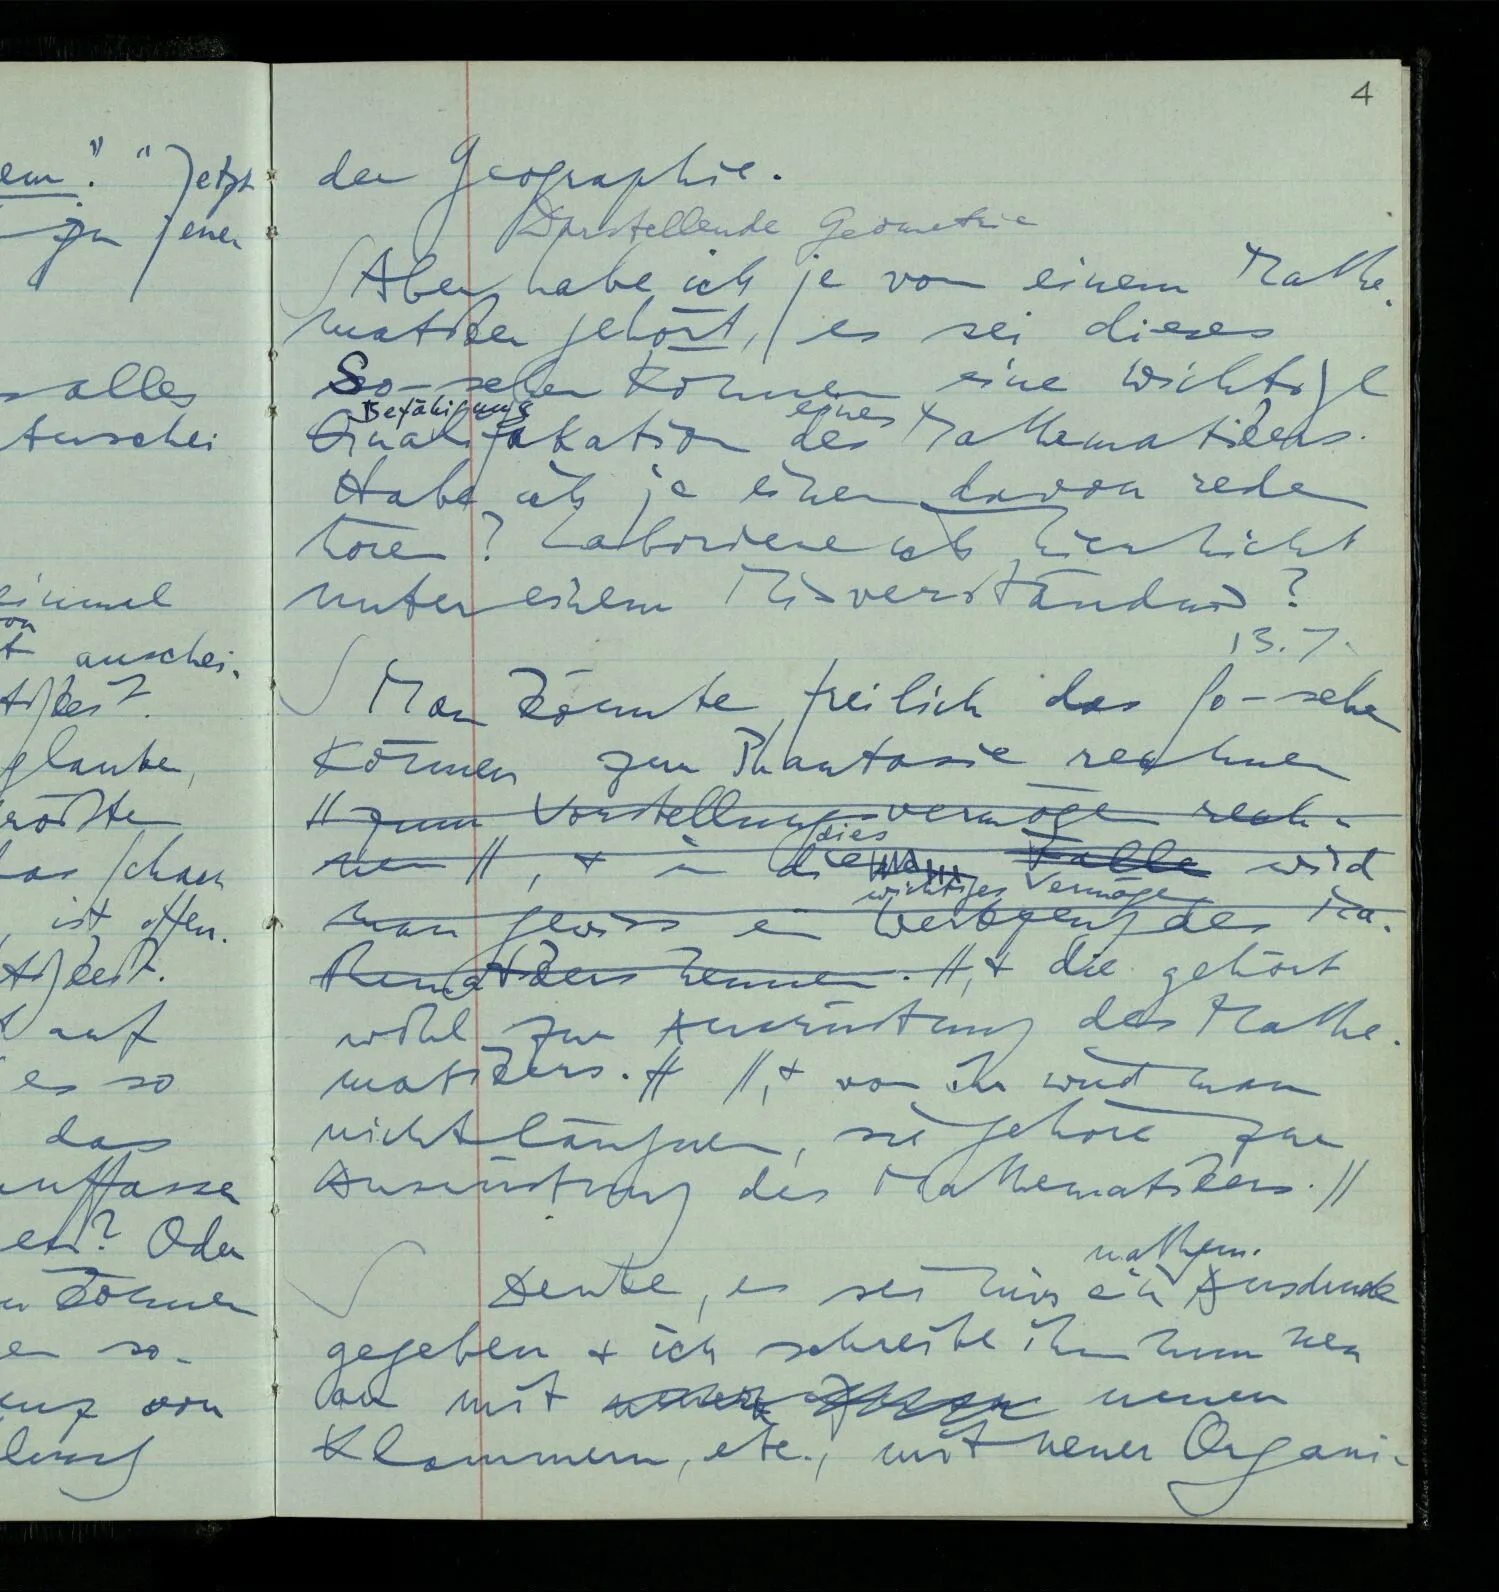 em." "Jetzt
zu jener
alles
anschei
einmal
von
anschei-
glaube,
größten
das Schach
ist offen-
auf
es so
das
auffasse
en? Oder
können
so-
von
4
der Geographie.
Darstellende Geometrie
Aber habe ich je von einem Mathe-
matiker gehört, es sei dieses
So-sehen Können eine wichtige
Befähigung eines
Qualifakation des Mathematikers.
Habe ich je einen davon reden
hören? Laboriere ich hier nicht
unter einem Misverständnis?
13.7.
Man könnte freilich das So-sehen
Können zur Phantasie rechnen
// zum Vorstellungsvermögen rech-
nen //, & in dies Falle wird
wichtiges Vermögen
man gewiss ein Werkzeug des Ma-
thematikers nennen. //, & die gehört
wohl zur Ausrüstung des Mathe-
matikers. // //, & von ihr wird man
nicht läugnen, sie gehöre zur
Ausrüstung des Mathematikers. //
mathem.
Denke, es sei uns ein Ausdruck
gegeben & ich schreibe ihn nun neu
an mit neuen
Klammern, etc., mit neuer Organi-